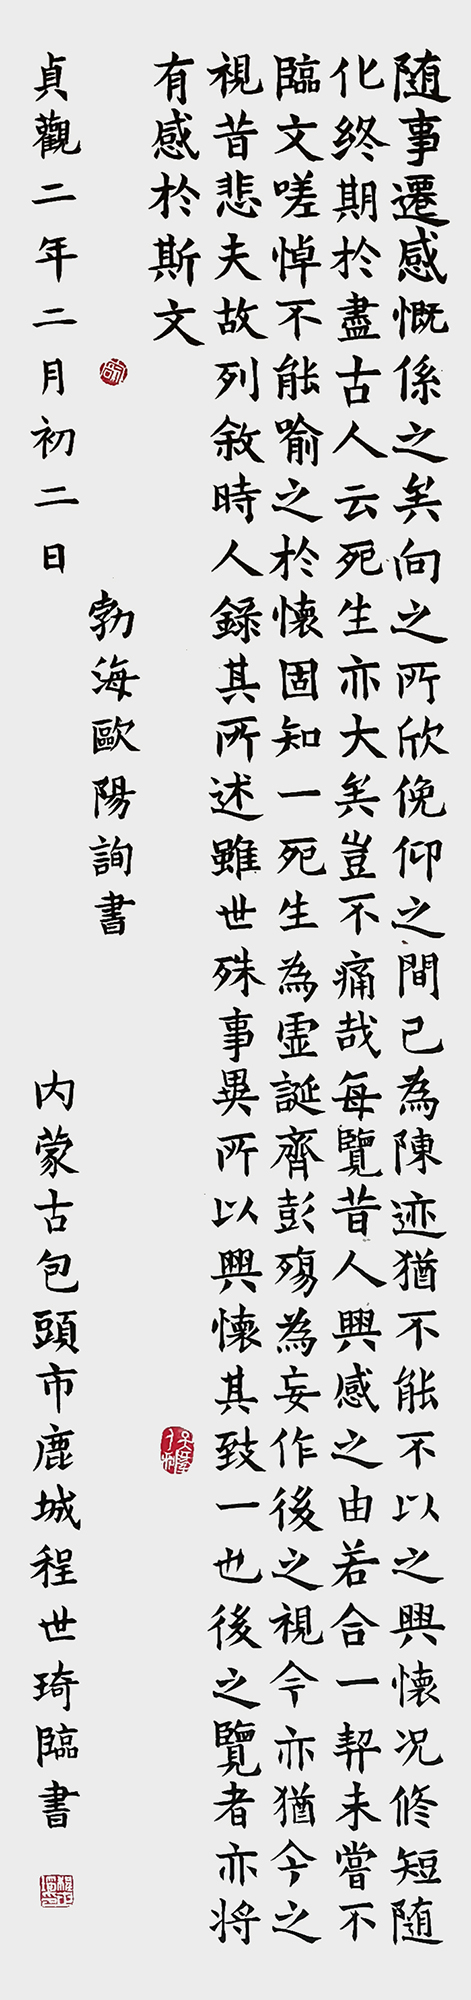 随事遷感慨係之矣向之所欣俛仰之間已為陳迹猶不能不以之興懷况修短随
化終期於盡古人云死生亦大矣豈不痛哉每覽昔人興感之由若合一契未嘗不
臨文嗟悼不能喻之於懷固知一死生為虛誕齊彭殤為妄作後之視今亦猶今之
視昔悲夫故列敘時人錄其所述雖世殊事異所以興懷其致一也後之覽者亦将
有感於斯文
勃海歐陽詢書
貞觀二年二月初二日
内蒙古包頭市鹿城程世琦臨書